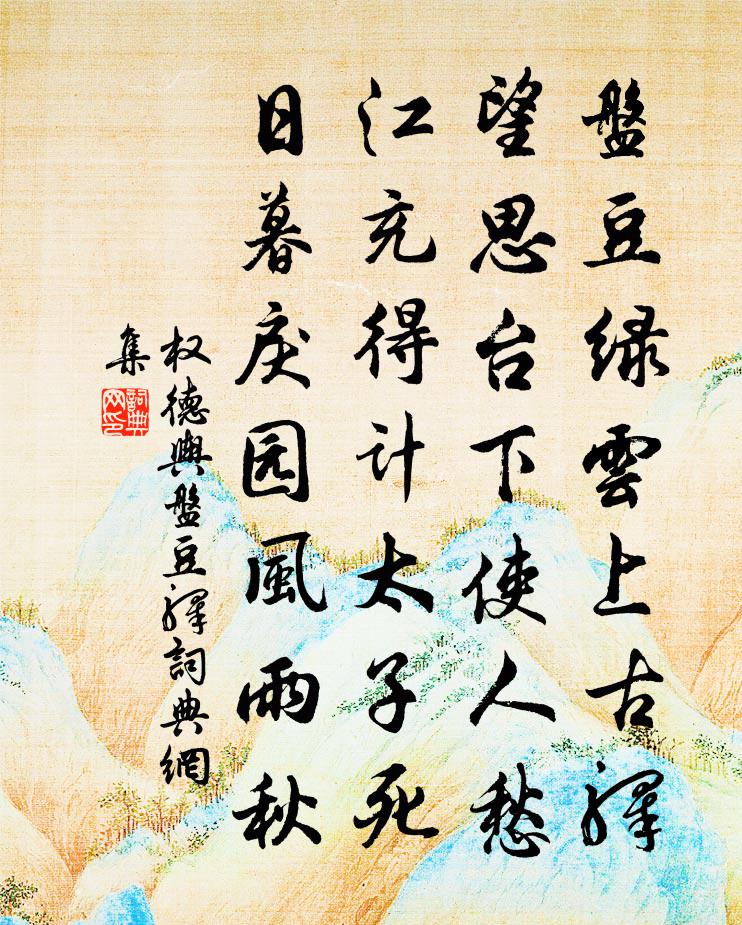 盤豆绿雲上古驛
望思台下使人愁
江充得计太子死
日暮戾园風雨秋
权德輿盤豆驛詞典網
集
詞典网印